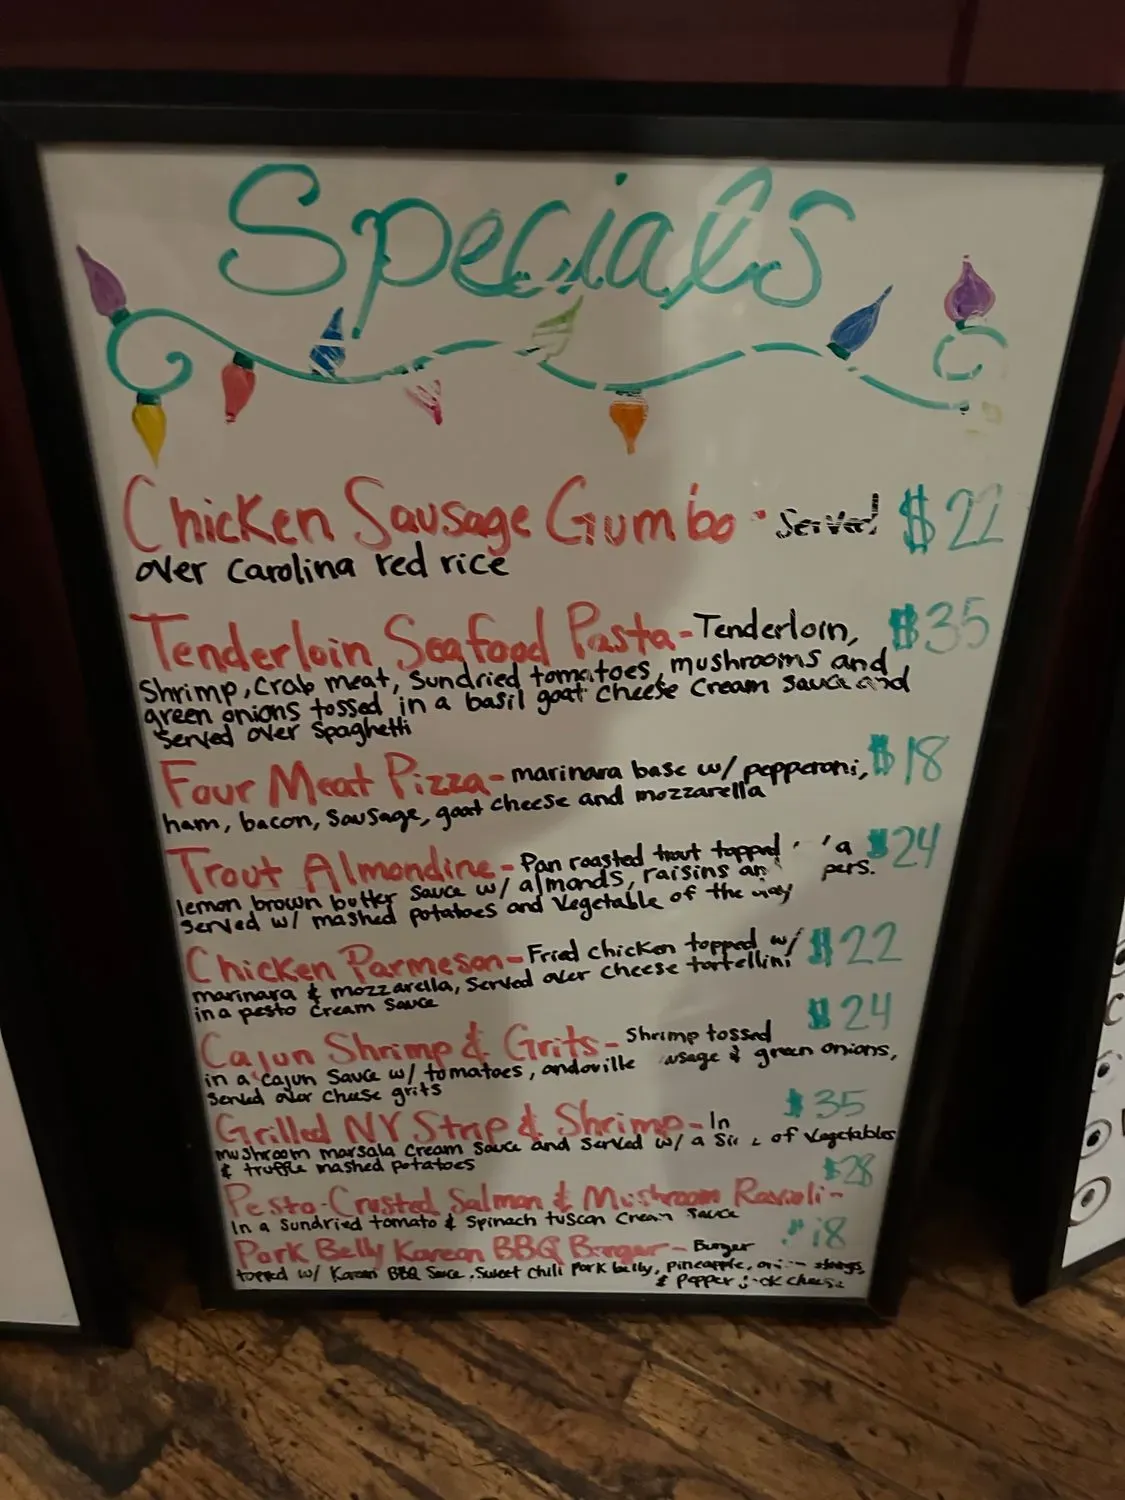 Specials
Chicken Sausage Gumbo - Served $22
over Carolina red rice
Tenderloin Seafood Pasta - Tenderloin, $35
Shrimp, crab meat, sundried tomatoes, mushrooms and
green onions tossed in a basil goat cheese cream sauce and
served over spaghetti
Four Meat Pizza - marinara base w/ pepperoni, $18
ham, bacon, sausage, goat cheese and mozzarella
Trout Almondine - Pan roasted trout topped a $24
lemon brown butter sauce w/ almonds, raisins pers.
served w/ mashed potatoes and vegetable of the day
Chicken Parmesan - Fried chicken topped w/ $22
marinara & mozzarella, served over cheese tortellini
in a pesto cream sauce
Cajun Shrimp & Grits - Shrimp tossed $24
in a cajun sauce w/ tomatoes, andoville & green onions,
served over cheese grits
Grilled NY Strip & Shrimp - In $35
mushroom marsala cream sauce and served w/ a of vegetables
& truffle mashed potatoes
Pesto-Crusted Salmon & Mushroom Ravioli - $28
In a sundried tomato & spinach tuscan cream sauce
Pork Belly Korean BBQ Burger - Burger $18
topped w/ Korean BBQ sauce, sweet chili pork belly, pineapple,
& pepper cheese